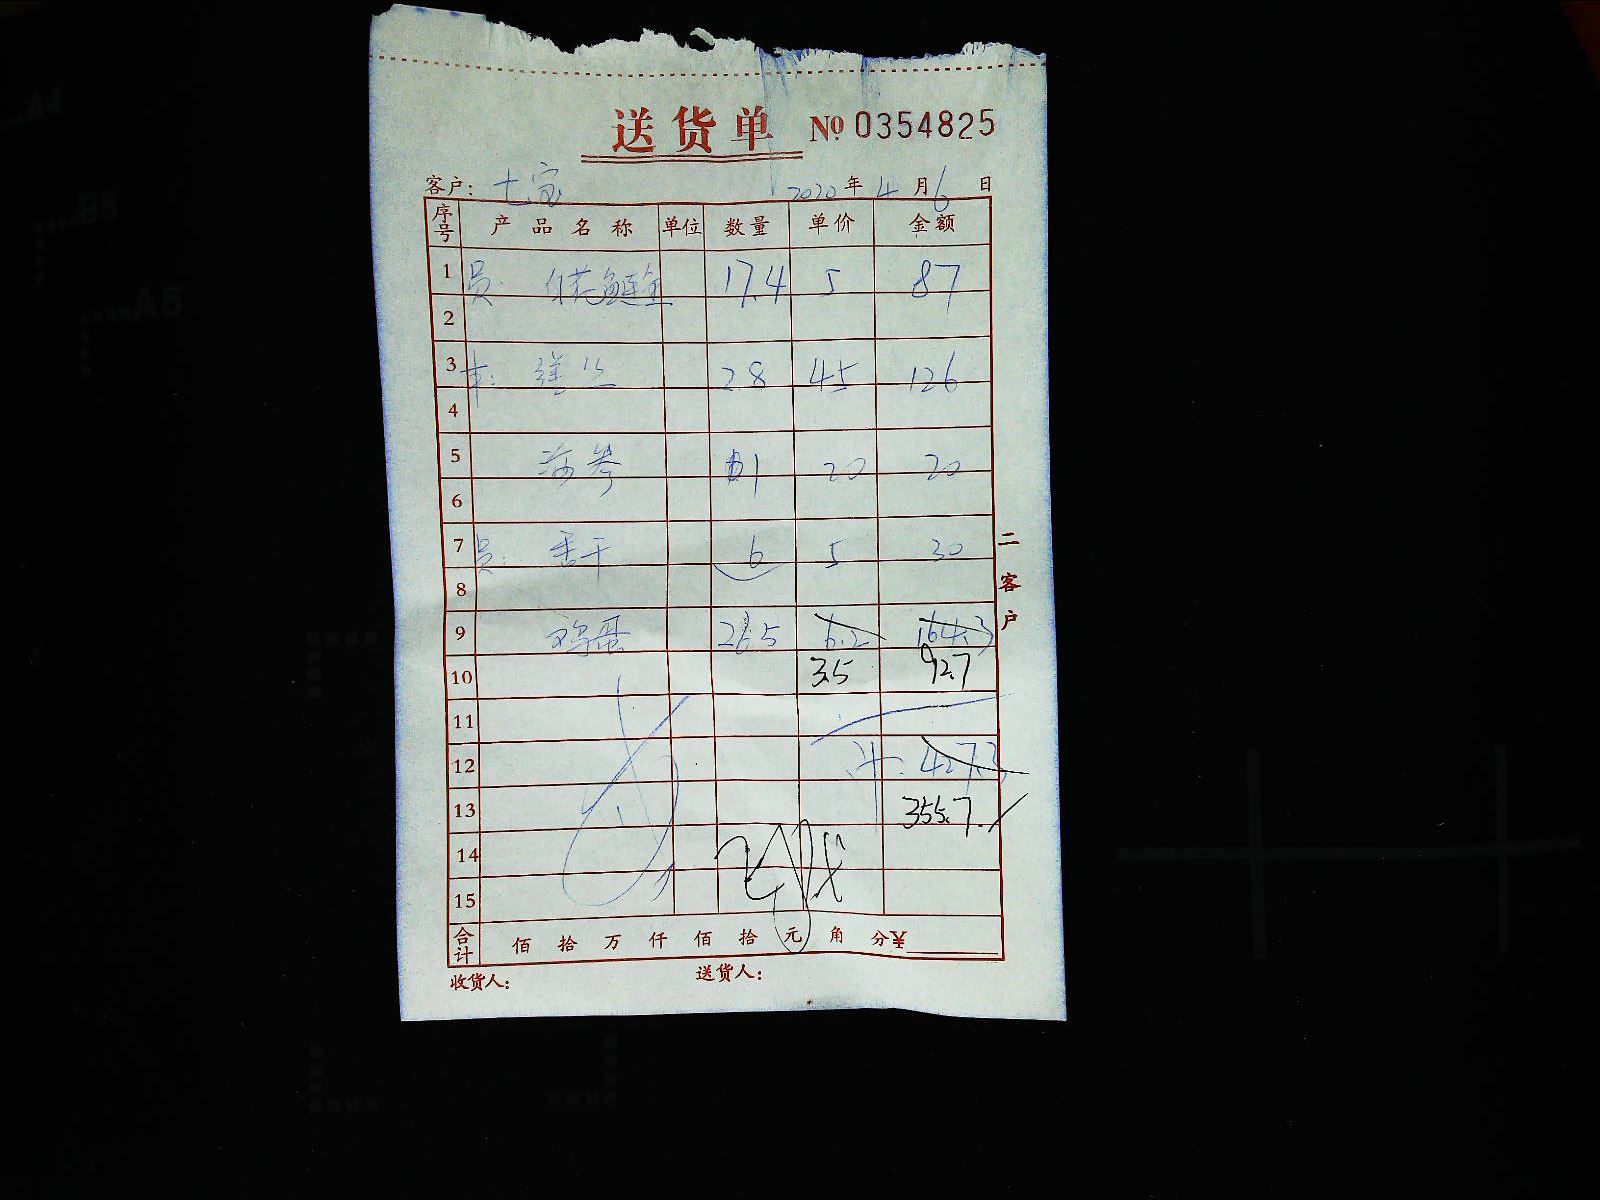 送货单 № 0354825
客户: 七宝 2020年4月6日
序号 产品名称 单位 数量 单价 金额
1 员: 白花鲢鱼 17.4 5 87
2
3 28 45 126
4
5 海参 1 20 20
6
7 员: 香干 6 5 30
8
9 鸡蛋 26.5 6.2 164.3
10 3.5 92.7
11
12 计: 427.3
13 355.7
14
15
合计 佰 拾 万 仟 佰 拾 元 角 分 ¥
收货人: 送货人:
二 客户